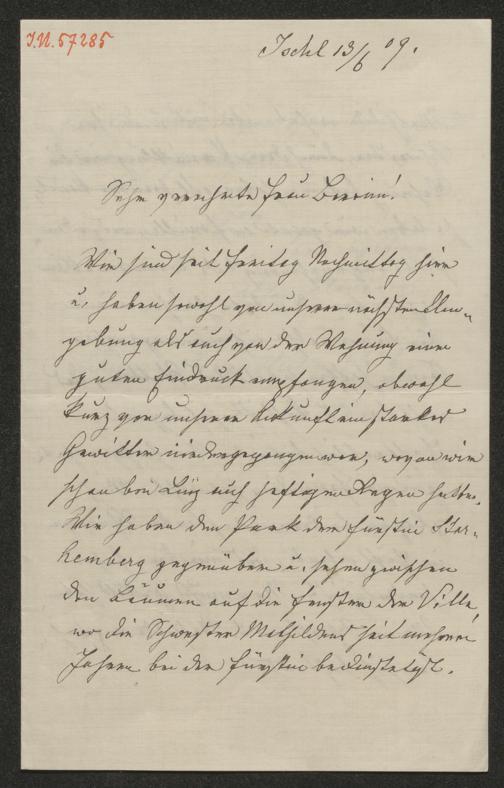 J.N. 57285
Ischl 13/6 09.
Sehr verehrte Frau Baronin!
Wir sind seit Freitag Nachmittag hier
u. haben sowohl von unserer nächsten Um-
gebung als auch von der Wohnung einen
guten Eindruck empfangen, obwohl
kurz vor unserer Ankunft ein starkes
Gewitter niedergegangen war, wovon wir
schon bei Linz auch heftigen Regen hatten.
Wir haben den Park der Fürstin Star-
hemberg gegenüber u. sehen zwischen
den Bäumen auf die Fenster der Villa,
wo die Schwester Mathildens seit mehreren
Jahren bei der Fürstin bedienstet ist.